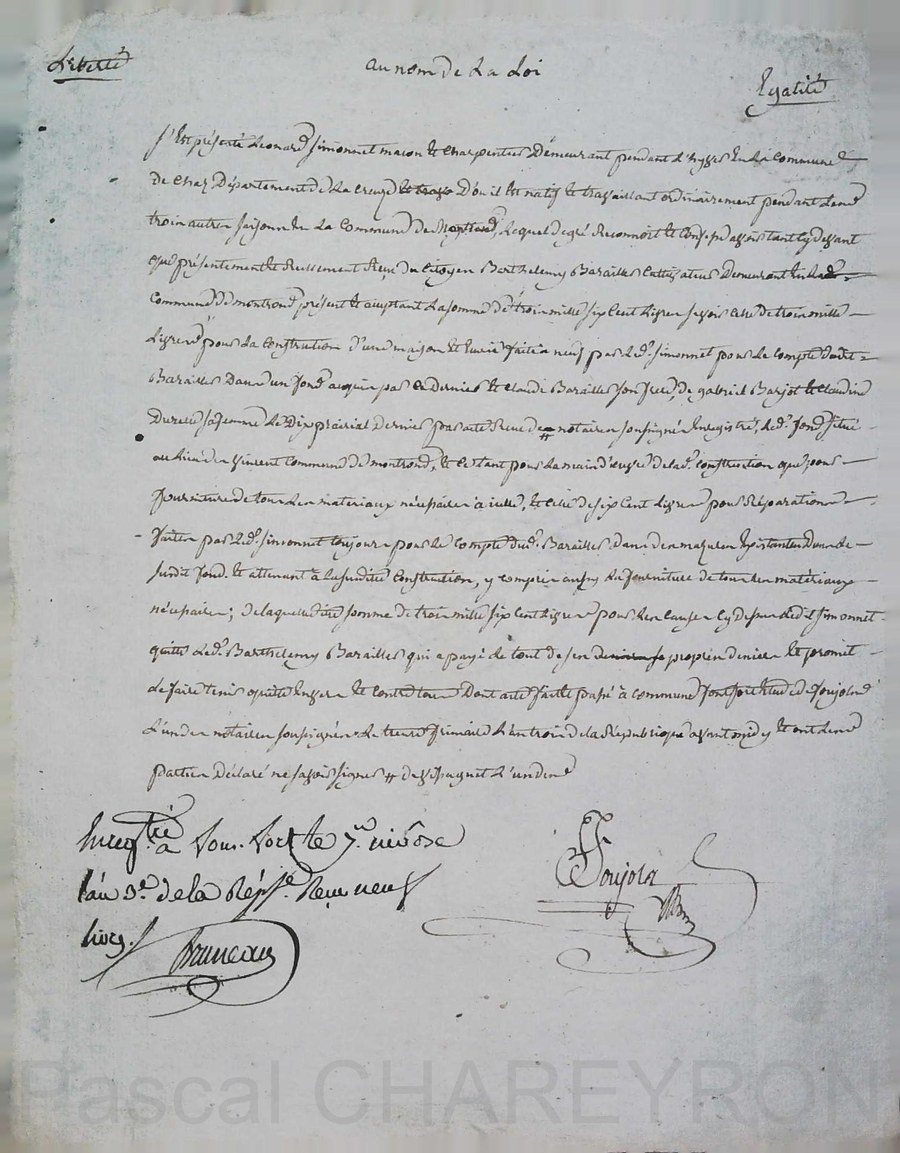 Liberté
au nom de La Loi
Egalité
S'Est présenté Leonard Simonnet macon et charpentier Demeurant pendant L'hyver En La Commune
De Département de La creuze D'ou il Est natif et travaillant ordinairement pendant Les
trois autres saisons En La Commune de Montrond, Lequel degré Reconnoit et Confesse avoir cy devant
que présentement et Réellement Reçu du Citoyen Barthelemy Barailles Cultivateur Demeurant En La de
Commune de montrond présent et acceptant La somme de trois mille six Cent Livres savoir celle de trois mille
Livres pour La Construction d'une maison et Ecurie faite à neuf par Led. Simonnet pour Le Compte dudit
Barailles Dans un fond acquis par Ce dernier et Claude Barailles son frere, de gabriel Barjot et Claudine
sa femme Le Dix prairial Dernier par acte Recu de # notaire soussigné Enregistré, Led. fond situé
au Lieu de Vincent Commune de montrond, et Ce tant pour La main d'euvre de Lad. Construction que pour
fourniture de tous Les materiaux nécessaires à icelle, et Celle de six Cent Livres pour Réparations
faites par Led. Simonnet toujours pour Le Compte dud. Barailles Dans Des mazures Existantes Dans Le
susdit fond et attenant à La susdite Construction, y compris aussy La fourniture de tous Les matériaux
nécessaires; De laquelle dite somme de trois mille six Cent Livres pour Les Causes Cy dessus Ledit Simonnet
quitte Led. Barthelemy Barailles qui a payé Le tout de ses propres deniers Et promet
Le faire tenir quitte Envers et Contre tous Dont acte fait et passé à Commune fontfort Etude de Soujola
L'un des notaires soussignés Le trente frimaire L'an trois de la République avant midy et ont Les
parties Déclaré ne savoir signer # Despaquet L'un des
Enregtré à Fons. Fort le 7. nivôse
l'an 3e. de la Répqe. Reçu neuf
livres.
Bruneau
Soujola
Pascal CHAREYRON